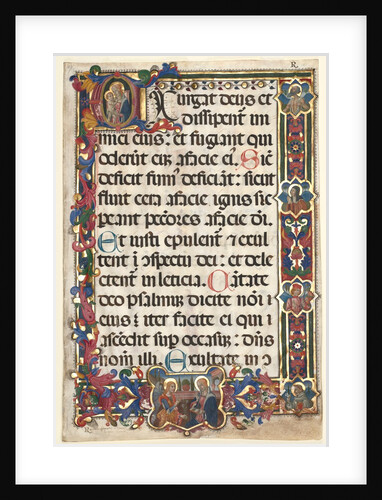 R
EXurgat deus et
dissipent ini
mici eius: et fugiant qui
oderūt eū afacie ei. Sic
deficit fum deficiāt: sicut
fluit cera afacie ignis sic
pereant peccōres afacie dī.
Et iusti epulent et exul
tent ī cōspectu dei: et dele
ctentur in leticia. Cātate
deo psalmū dicite nōī
eius iter facite ei qui
ascēdit sup occasū: dn̄s
nom̄ illi. Exultate in
R